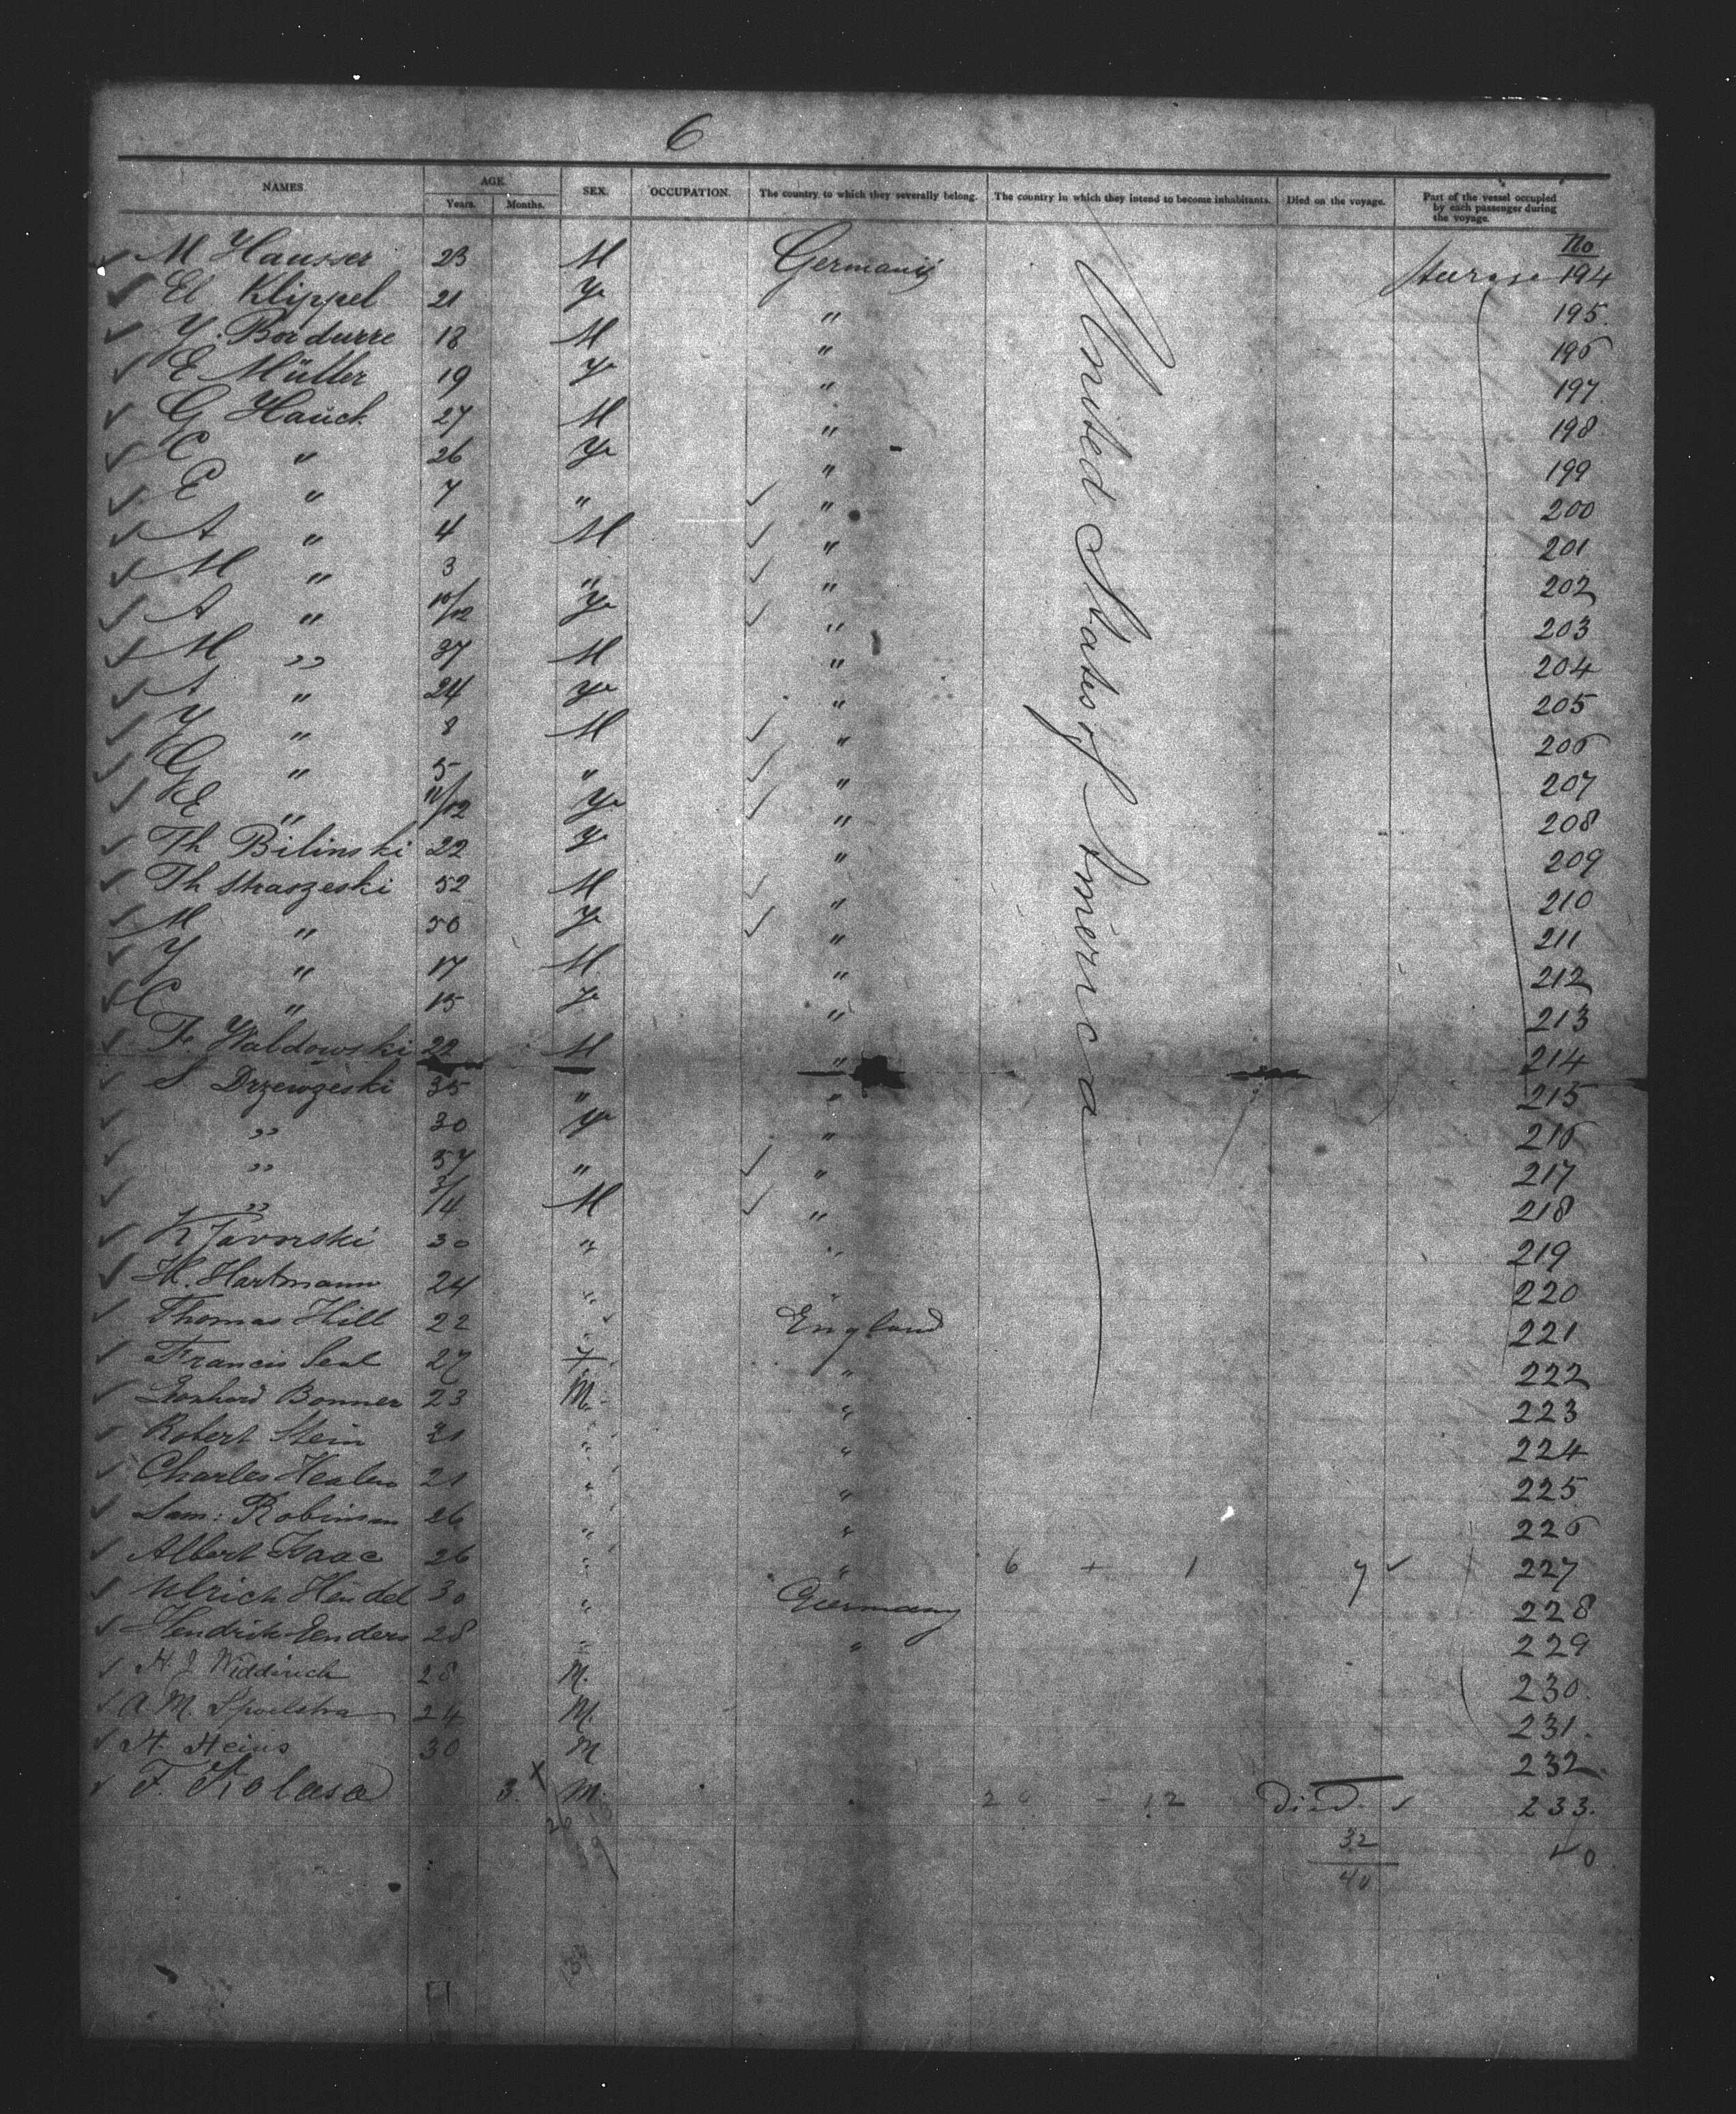 6
NAMES. AGE. SEX. OCCUPATION. The country to which they severally belong. The country in which they intend to become inhabitants. Died on the voyage. Part of the vessel occupied by each passenger during the voyage.
Years. Months.
No
M Hausser 23 M Germany United States of America 194
El Klippel 21 " 195.
Y. Bordurre 18 M " 196
E Müller 19 " 197.
G Hauch 27 M " 198.
C " 26 " 199
E " 7 " " 200
A " 4 M " 201
M " 3 " " 202
A " 10/12 " 203
M " 37 M " 204
A " 24 " 205
Y " 8 M " 206
G " 5 " " 207
E " 11/12 " 208
Th Bilinski 22 " 209
Th Straszeski 52 M " 210
M " 50 " 211
Y " 17 M " 212
C " 15 " 213
F. Waldowski M " 214
S Drzewzeski 35 " " 215
" 30 " 216
" 57 " " 217
" M " 218
K Javorski 30 " " 219
H. Hartmann 24 " " 220
Thomas Hill 22 " England 221
Francis Seal 27 " 222
Bonner 23 M. " 223
Robert Stein 21 " " 224
Charles 21 " " 225
Sam: Robinson 26 " " 226
Albert Isaac 26 " " 6 + 1 7 227
Ulrich Hendel 30 " Germany 228
Hendrik Enders 28 " " 229
H. J. Widdirich 28 M. 230.
A M. Spoelstra 24 M. 231.
H. Heins 30 M 232.
F. Kolasa 3. x M. 12 Died. 233.
32
40
40